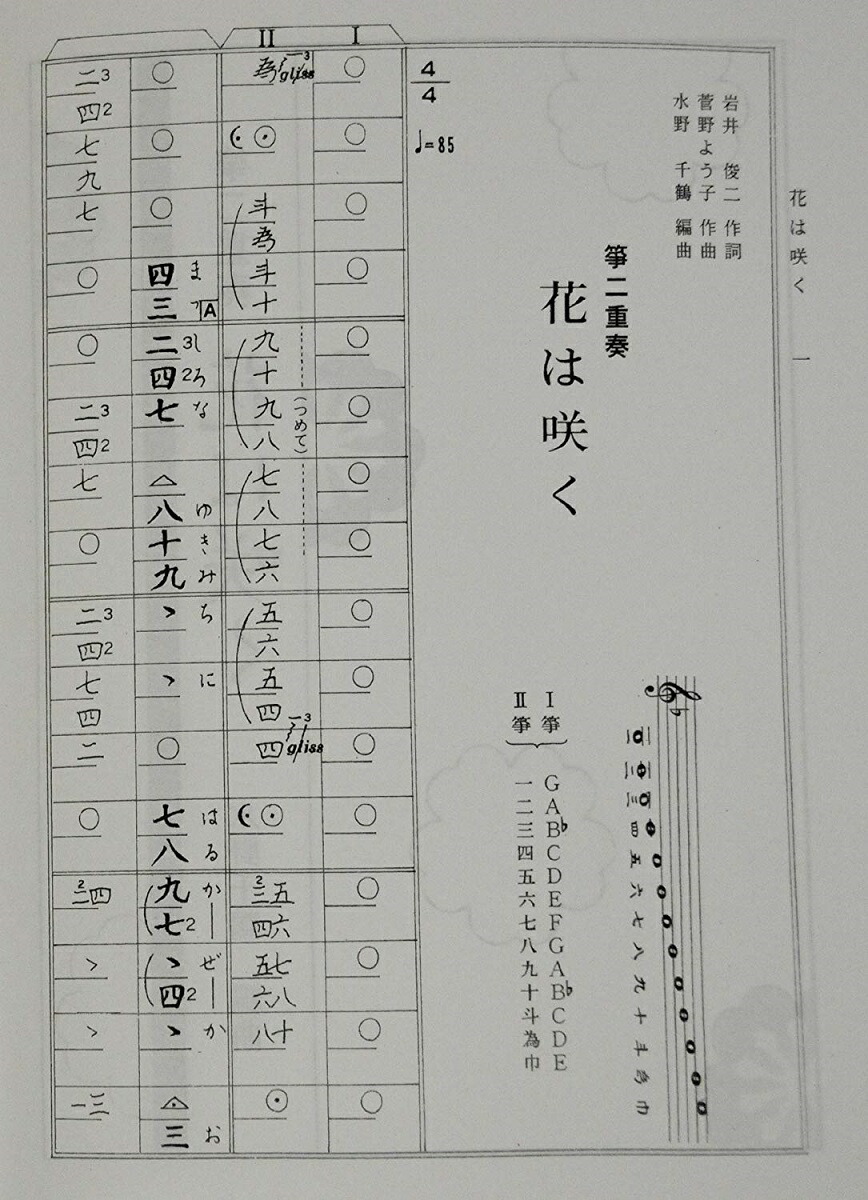 花は咲く 一
岩井 俊二 作詞
菅野よう子 作曲
水野 千鶴 編曲
箏二重奏
花は咲く
一 二 三 四 五 六 七 八 九 十 斗 為 巾
I 箏 G A B♭ C D E F G A B♭ C D E
II 箏 一 二 三 四 五 六 七 八 九 十 斗 為 巾
4/4
♩=85
I
○ ○ ○ ○ ○ ○ ○ ○ ○ ○ ○ ○ ○ ○ ○ ○
II
為 gliss 一3 ⊙ 斗 為 斗 十 九 十 九 八 七 八 七 六 五 六 五 四 四 gliss 一3 ⊙ 2三五 四六 五七 六八 八十 ⊙
(つめて)
○ ○ ○ 四 三 二3 四2 七 △ 八 十 九 ヽ ヽ ○ 七 八 九 七2 ヽ 四2 ヽ △ 三
まっ A しろ な ゆ きみ ち に はる か｜ ぜ｜ か お
二3 四2 七 九 七 ○ ○ 二3 四2 七 ○ 二3 四2 七 四 二 ○ 2三四 ヽ ヽ 一三